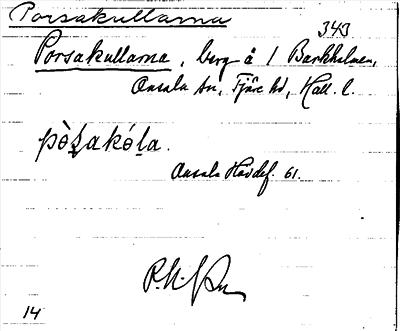 Porsakullarna
343
Porsakullarna, berg å / Barkholmen,
Onsala sn, Fjäre hd, Hall. l.
pòs̠akól̠a.
Onsala Hävdef. 61.
14